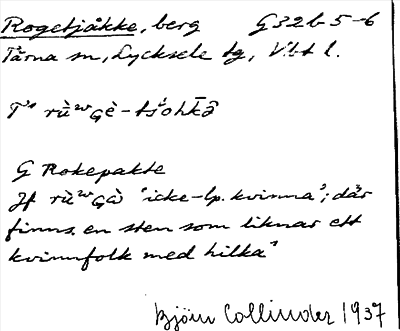 Rogetjåkke, berg G32b 5-6
Tärna sn, Lycksele tg, Vbt l.
G Rokepakte
Jf "icke-lp. kvinna"; där
finns en sten som liknar ett
kvinnfolk med hilka"
Björn Collinder 1937